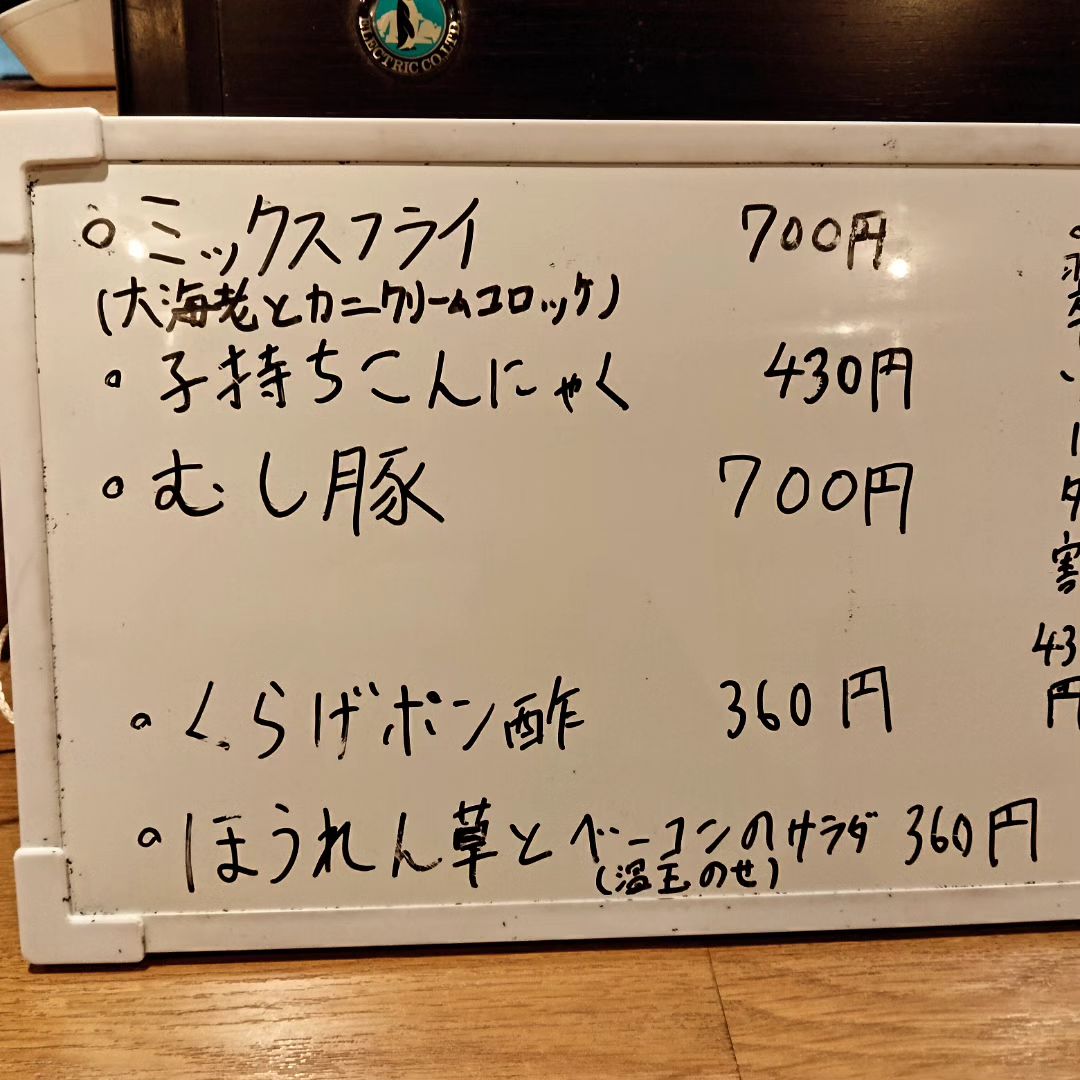 ELECTRIC CO.,LTD
○ミックスフライ 700円
(大海老とカニクリームコロッケ)
○子持ちこんにゃく 430円
○むし豚 700円
○くらげポン酢 360円
○ほうれん草とベーコンのサラダ 360円
(温玉のせ)
割
43
円